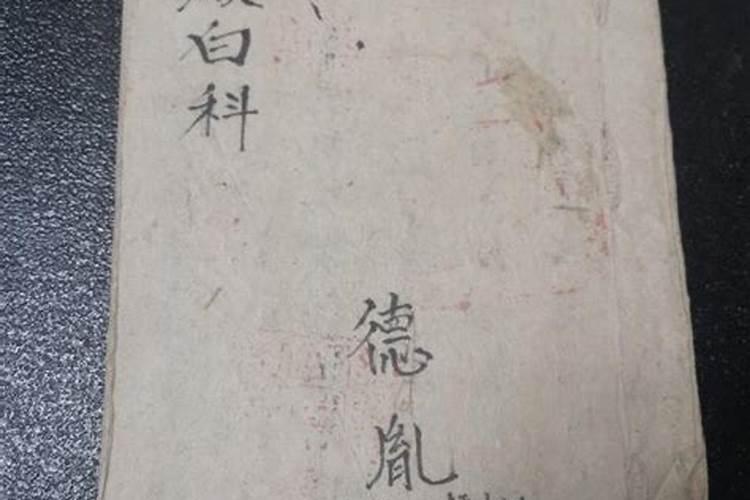 白科
德胤